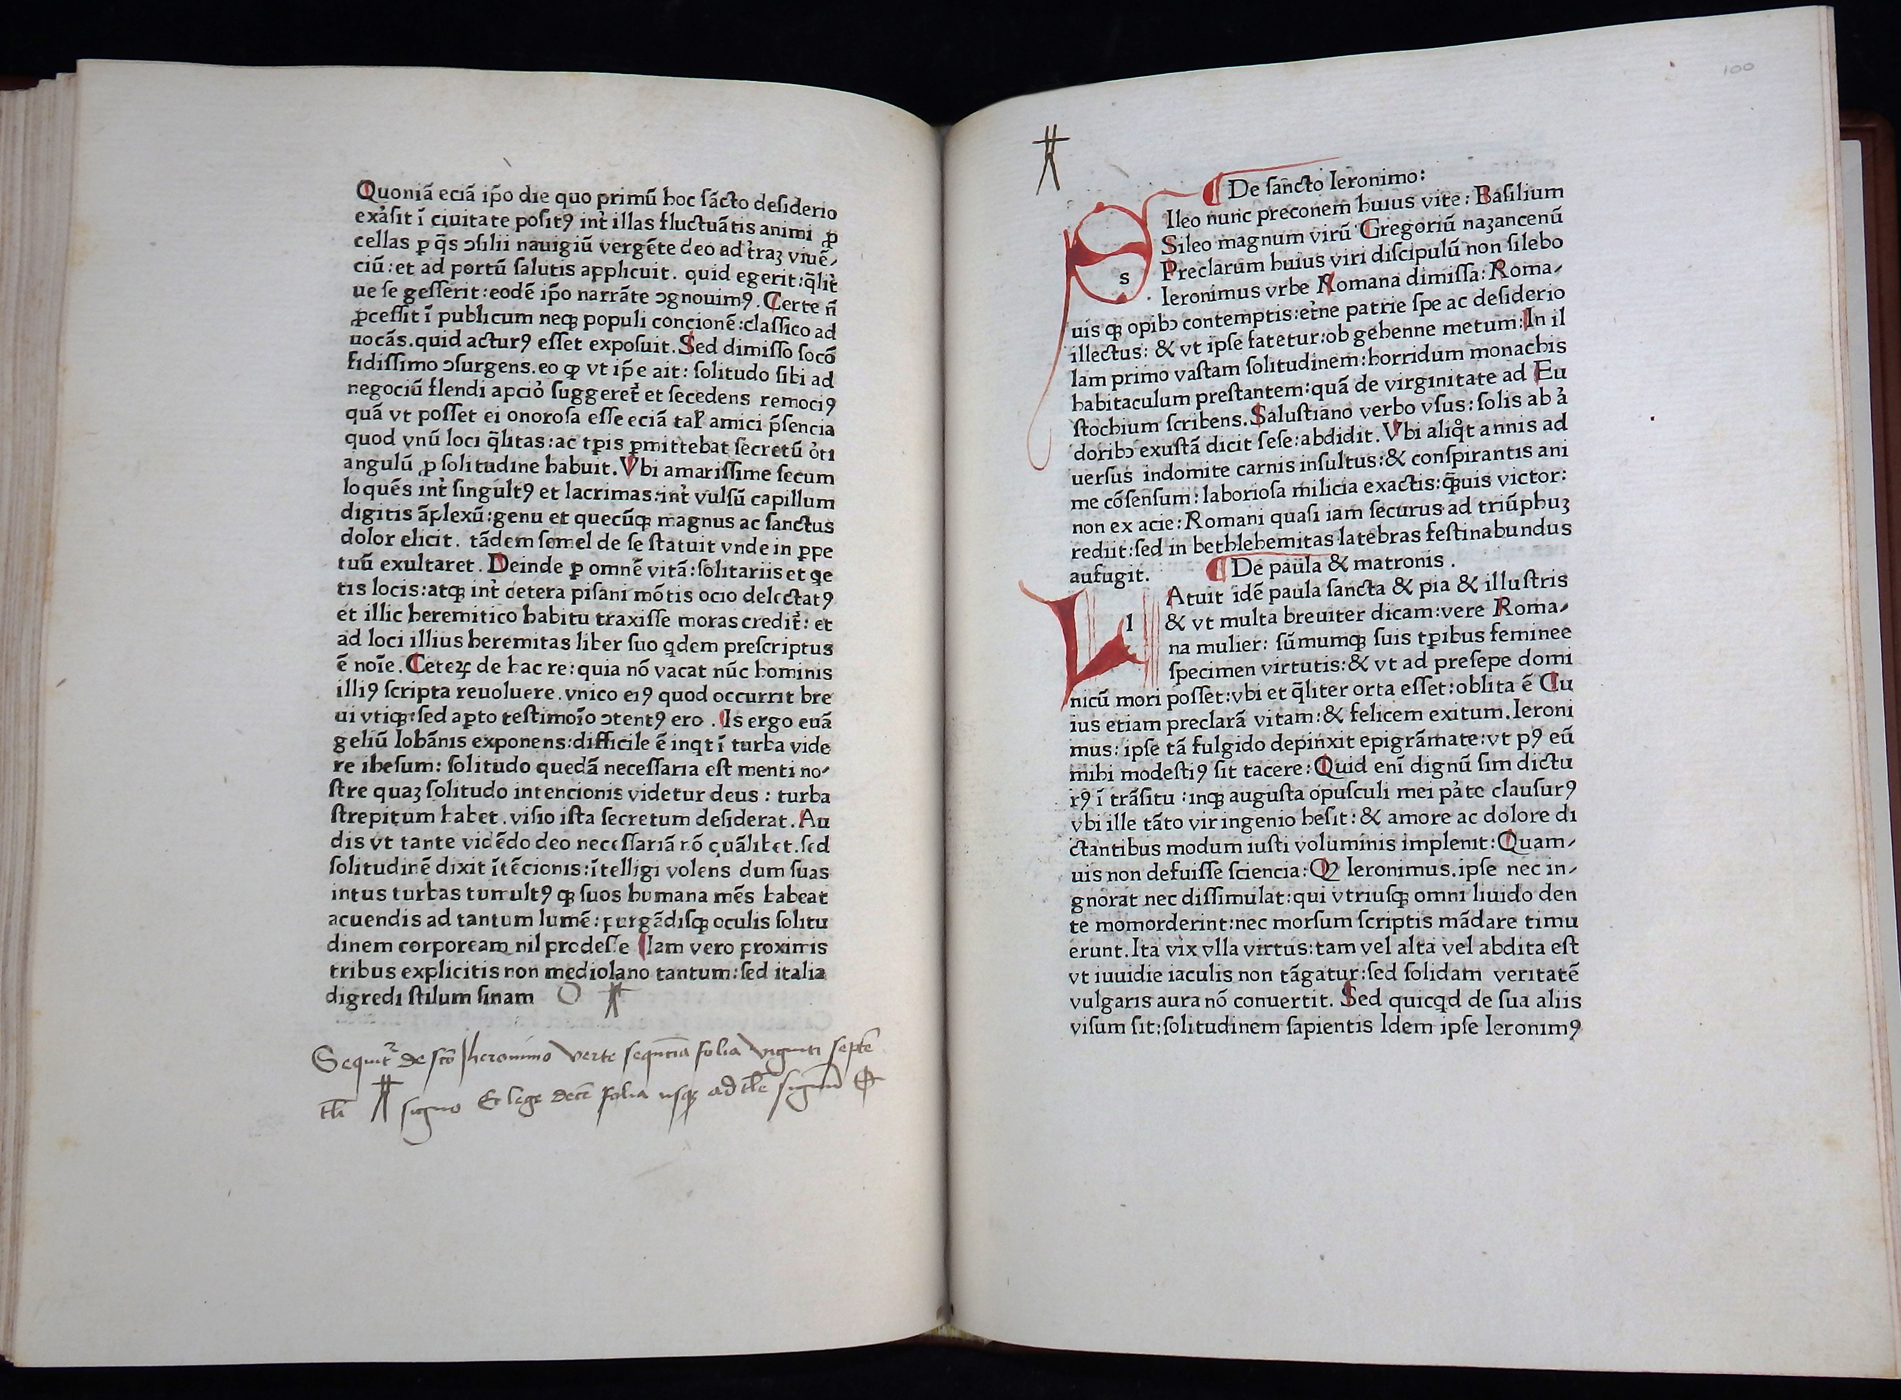 Quoniā eciā ip̄o die quo primū hoc sācto desiderio
exāsit ī ciuitate posit⁹ int̄ illas fluctuātis animi ꝓ
cellas ꝑ q̄s ↄsilii nauigiū vergēte deo ad t̄raꝫ viuē⸗
ciū: et ad portū salutis applicuit. quid egerit: q̄lit̄
ue se gesserit: eodē ip̄o narrāte ↄgnouim⁹. Certe n̄
ꝓcessit ī publicum neqꝫ populi concionē: classico ad
uocās. quid actur⁹ esset exposuit. Sed dimisso socō
fidissimo ↄsurgens. eo ꝙ vt ip̄e ait: solitudo sibi ad
negociū flendi apcio᷒ suggeret̄ et secedens remoci⁹
quā vt posset ei onorosa esse eciā tal̄ amici p̄sencia
quod vnū loci q̄litas: ac tꝑis ꝑmittebat secretū oᷓti
angulū ꝓ solitudine habuit. Vbi amarissime secum
loquēs int̄ singult⁹ et lacrimas: int̄ vulsū capillum
digitis āplexū: genu et quecūqꝫ magnus ac sanctus
dolor elicit. tādem semel de se statuit vnde in ꝑpe
tuū exultaret. Deinde ꝑ omnē vitā: solitariis et q̄e
tis locis: atqꝫ int̄ cetera pisani mōtis ocio delectat⁹
et illic heremitico habitu traxisse moras credit̄: et
ad loci illius heremitas liber suo q̄dem prescriptus
ē noīe. Ceteꝝ de hac re: quia nō vacat nūc hominis
illi⁹ scripta reuoluere. vnico ei⁹ quod occurrit bre
ui vtiqꝫ: sed aꝑto testimoīo ↄtent⁹ ero. Is ergo euā
geliū Iohānis exponens: difficile ē inqt ī turba vide
re ihesum: solitudo quedā necessaria est menti no⸗
stre quaꝫ solitudo intencionis videtur deus: turba
strepitum habet. visio ista secretum desiderat. Au
dis vt tante vidēdo deo necessariā nō quālibet. sed
solitudinē dixit ītēcionis: ītelligi volens dum suas
intus turbas tumult⁹ qꝫ suos humana mēs habeat
acuendis ad tantum lumē: purgādisqꝫ oculis solitu
dinem corpoream nil prodesse Iam vero proximis
tribus explicitis non mediolano tantum: sed italia
digredi stilum sinam
Sequit̄ de scō Iheronimo verte sequēcia folia viginti septē
tali signo Et lege decē folia usqꝫ ad tale signū
100
De sancto Ieronimo:
s Ileo nunc preconem huius vite: Basilium
Sileo magnum virū Gregoriū naꝫancenū
Preclarum huius viri discipulū non silebo
Ieronimus vrbe Romana dimissa: Roma⸗
uis qꝫ opibↄ contemptis: et̄ne patrie spe ac desiderio
illectus: & vt ipse fatetur: ob gehenne metum: In il
lam primo vastam solitudinem: horridum monachis
habitaculum prestantem: quā de virginitate ad Eu
stochium scribens. Salustiano verbo vsus: solis ab a᷒
doribↄ exustā dicit sese: abdidit. Vbi aliq̊t annis ad
uersus indomite carnis insultus: & conspirantis ani
me cōsensum: laboriosa milicia exactis: q̄uis victor:
non ex acie: Romani quasi iam securus ad triūphuꝫ
rediit: sed in bethlehemitas latebras festinabundus
aufugit. De paula & matronis.
l Atuit idē paula sancta & pia & illustris
& vt multa breuiter dicam: vere Roma⸗
na mulier: sūmumqꝫ suis tꝑibus feminee
specimen virtutis: & vt ad presepe domi
nicū mori posset: vbi et q̄liter orta esset: oblita ē Cu
ius etiam preclarā vitam: & felicem exitum. Ieroni
mus: ipse tā fulgido depinxit epigrāmate: vt p⁹ eū
mihi modesti⁹ sit tacere: Quid enī dignū sim dictu
r⁹ ī trāsitu: inqꝫ augusta opusculi mei pa᷒te clausur⁹
vbi ille tāto vir ingenio hesit: & amore ac dolore di
ctantibus modum iusti voluminis implenit: Quam⸗
uis non defuisse sciencia: Qꝫ Ieronimus. ipse nec in⸗
gnorat nec dissimulat: qui vtriusqꝫ omni liuido den
te momorderint: nec morsum scriptis mādare timu
erunt. Ita vix vlla virtus: tam vel alta vel abdita est
vt iuuidie iaculis non tāgatur: sed solidam veritatē
vulgaris aura nō conuertit. Sed quicq̄d de sua aliis
visum sit: solitudinem sapientis Idem ipse Ieronim⁹